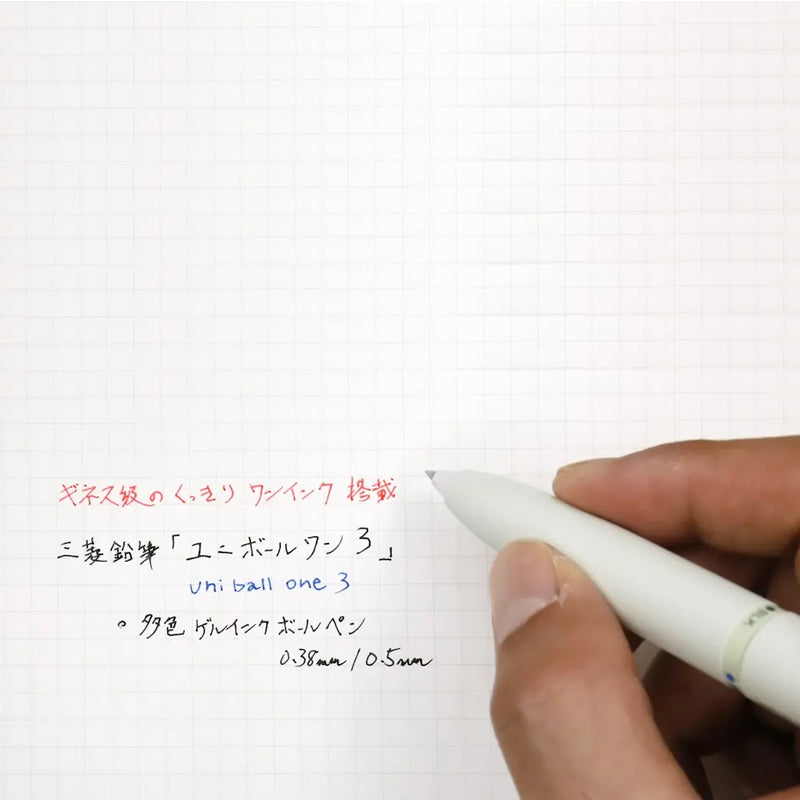 ギネス級のくっきりワンインク 搭載
三菱鉛筆「ユニボールワン3」
uni ball one 3
。多色ゲルインクボールペン
0.38mm/0.5mm
BLK